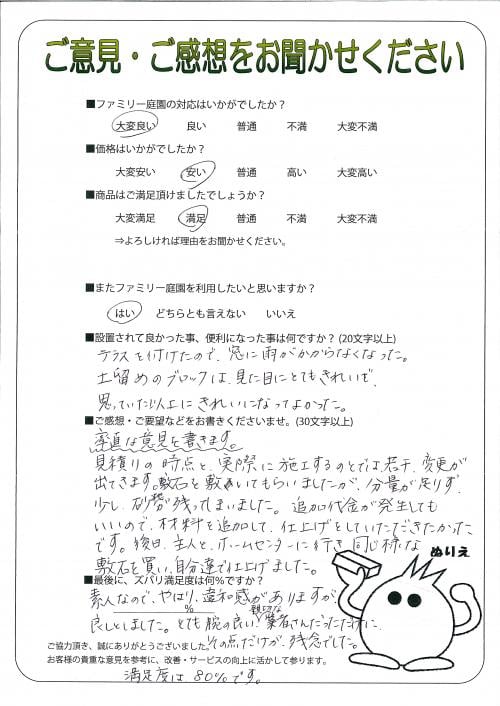 ご意見・ご感想をお聞かせください
■ファミリー庭園の対応はいかがでしたか？
大変良い 良い 普通 不満 大変不満
■価格はいかがでしたか？
大変安い 安い 普通 高い 大変高い
■商品はご満足頂けましたでしょうか？
大変満足 満足 普通 不満 大変不満
⇒よろしければ理由をお聞かせください。
■またファミリー庭園を利用したいと思いますか？
はい どちらとも言えない いいえ
■設置されて良かった事、便利になった事は何ですか？(20文字以上)
テラスを付けたので、窓に雨がかからなくなった。
土留めのブロックは、見た目にとてもきれいで、
思っていた以上にきれいになってよかった。
■ご感想・ご要望などをお書きくださいませ。(30文字以上)
率直な意見を書きます。
見積りの時点と、実際に施工するのとでは若干、変更が
出てきます。敷石を敷いてもらいましたが、分量が足りず、
少し、砂が残ってしまいました。追加代金が発生しても
いいので、材料を追加して、仕上げをしていただきたかった
です。後日、主人と、ホームセンターに行き、同じ様な
敷石を買い、自分達で仕上げました。
ぬりえ
■最後に、ズバリ満足度は何%ですか？
素人なので、やはり、違和感がありますが、
%
良しとしました。とても腕の良い、親切な業者さんだったために、
ご協力頂き、誠にありがとうございました。その点だけが、残念でした。
お客様の貴重な意見を参考に、改善・サービスの向上に活かして参ります。
満足度は、80%です。